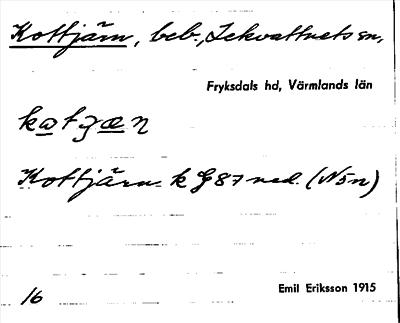 Kottjärn, beb., Lekvattnets sn,
Fryksdals hd, Värmlands län
kotjæn
Kottjärn. k G87 ned. (N5n)
16
Emil Eriksson 1915